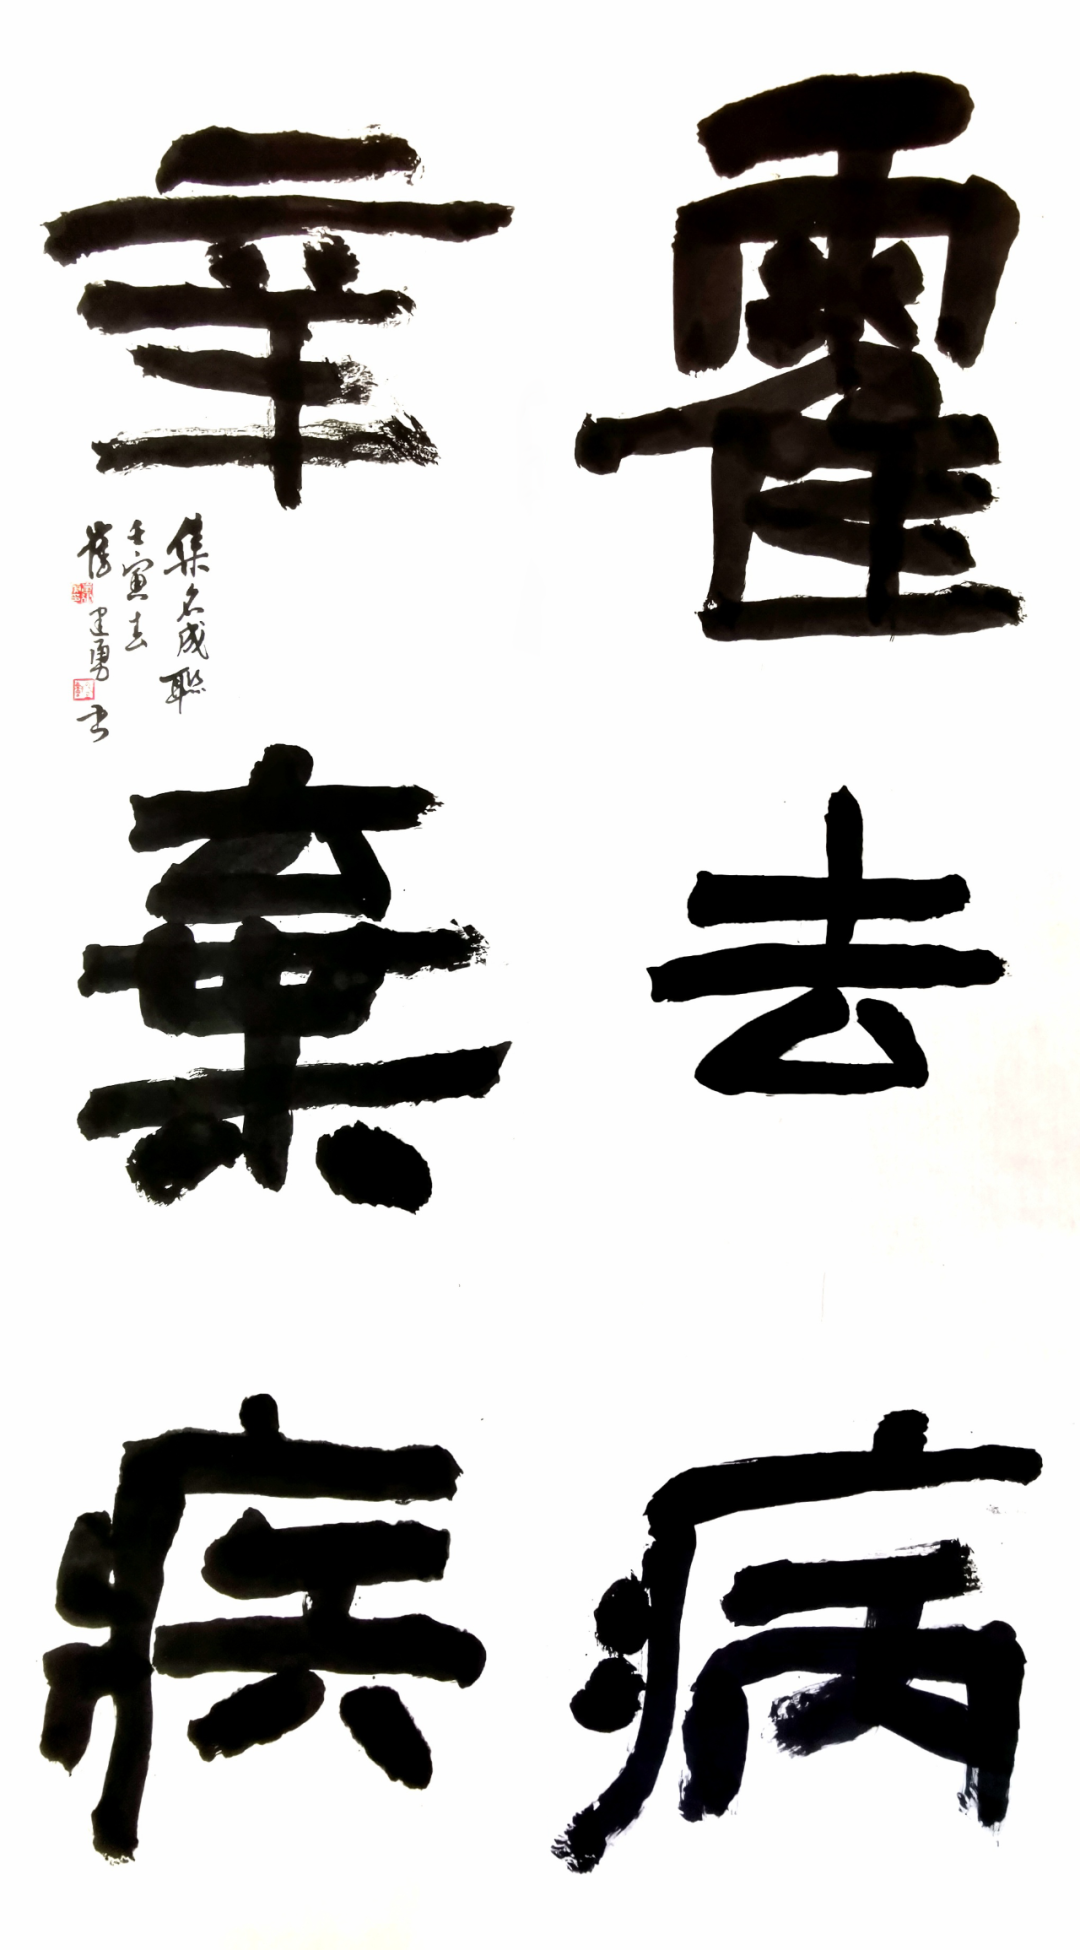 霍去病
辛棄疾
集名成聯
壬寅
建勇书